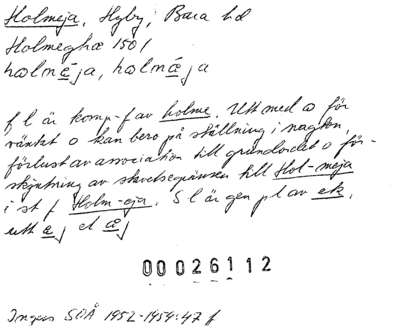 Holmeja, Hyby, Bara hd
Holmeghæ 1501
hωlmǽja, hωlmǽja
f l är komp-f av holme. Utt med ω för
väntat o kan bero på ställning i nagton,
förlust av association till grundordet o för-
skjutning av stavelsegränsen till Hol-meja
i st f Holm-eja. S l är gen pl av ek,
utt æj el æj
00026112
Ingers SOÅ 1952-1954:47 f